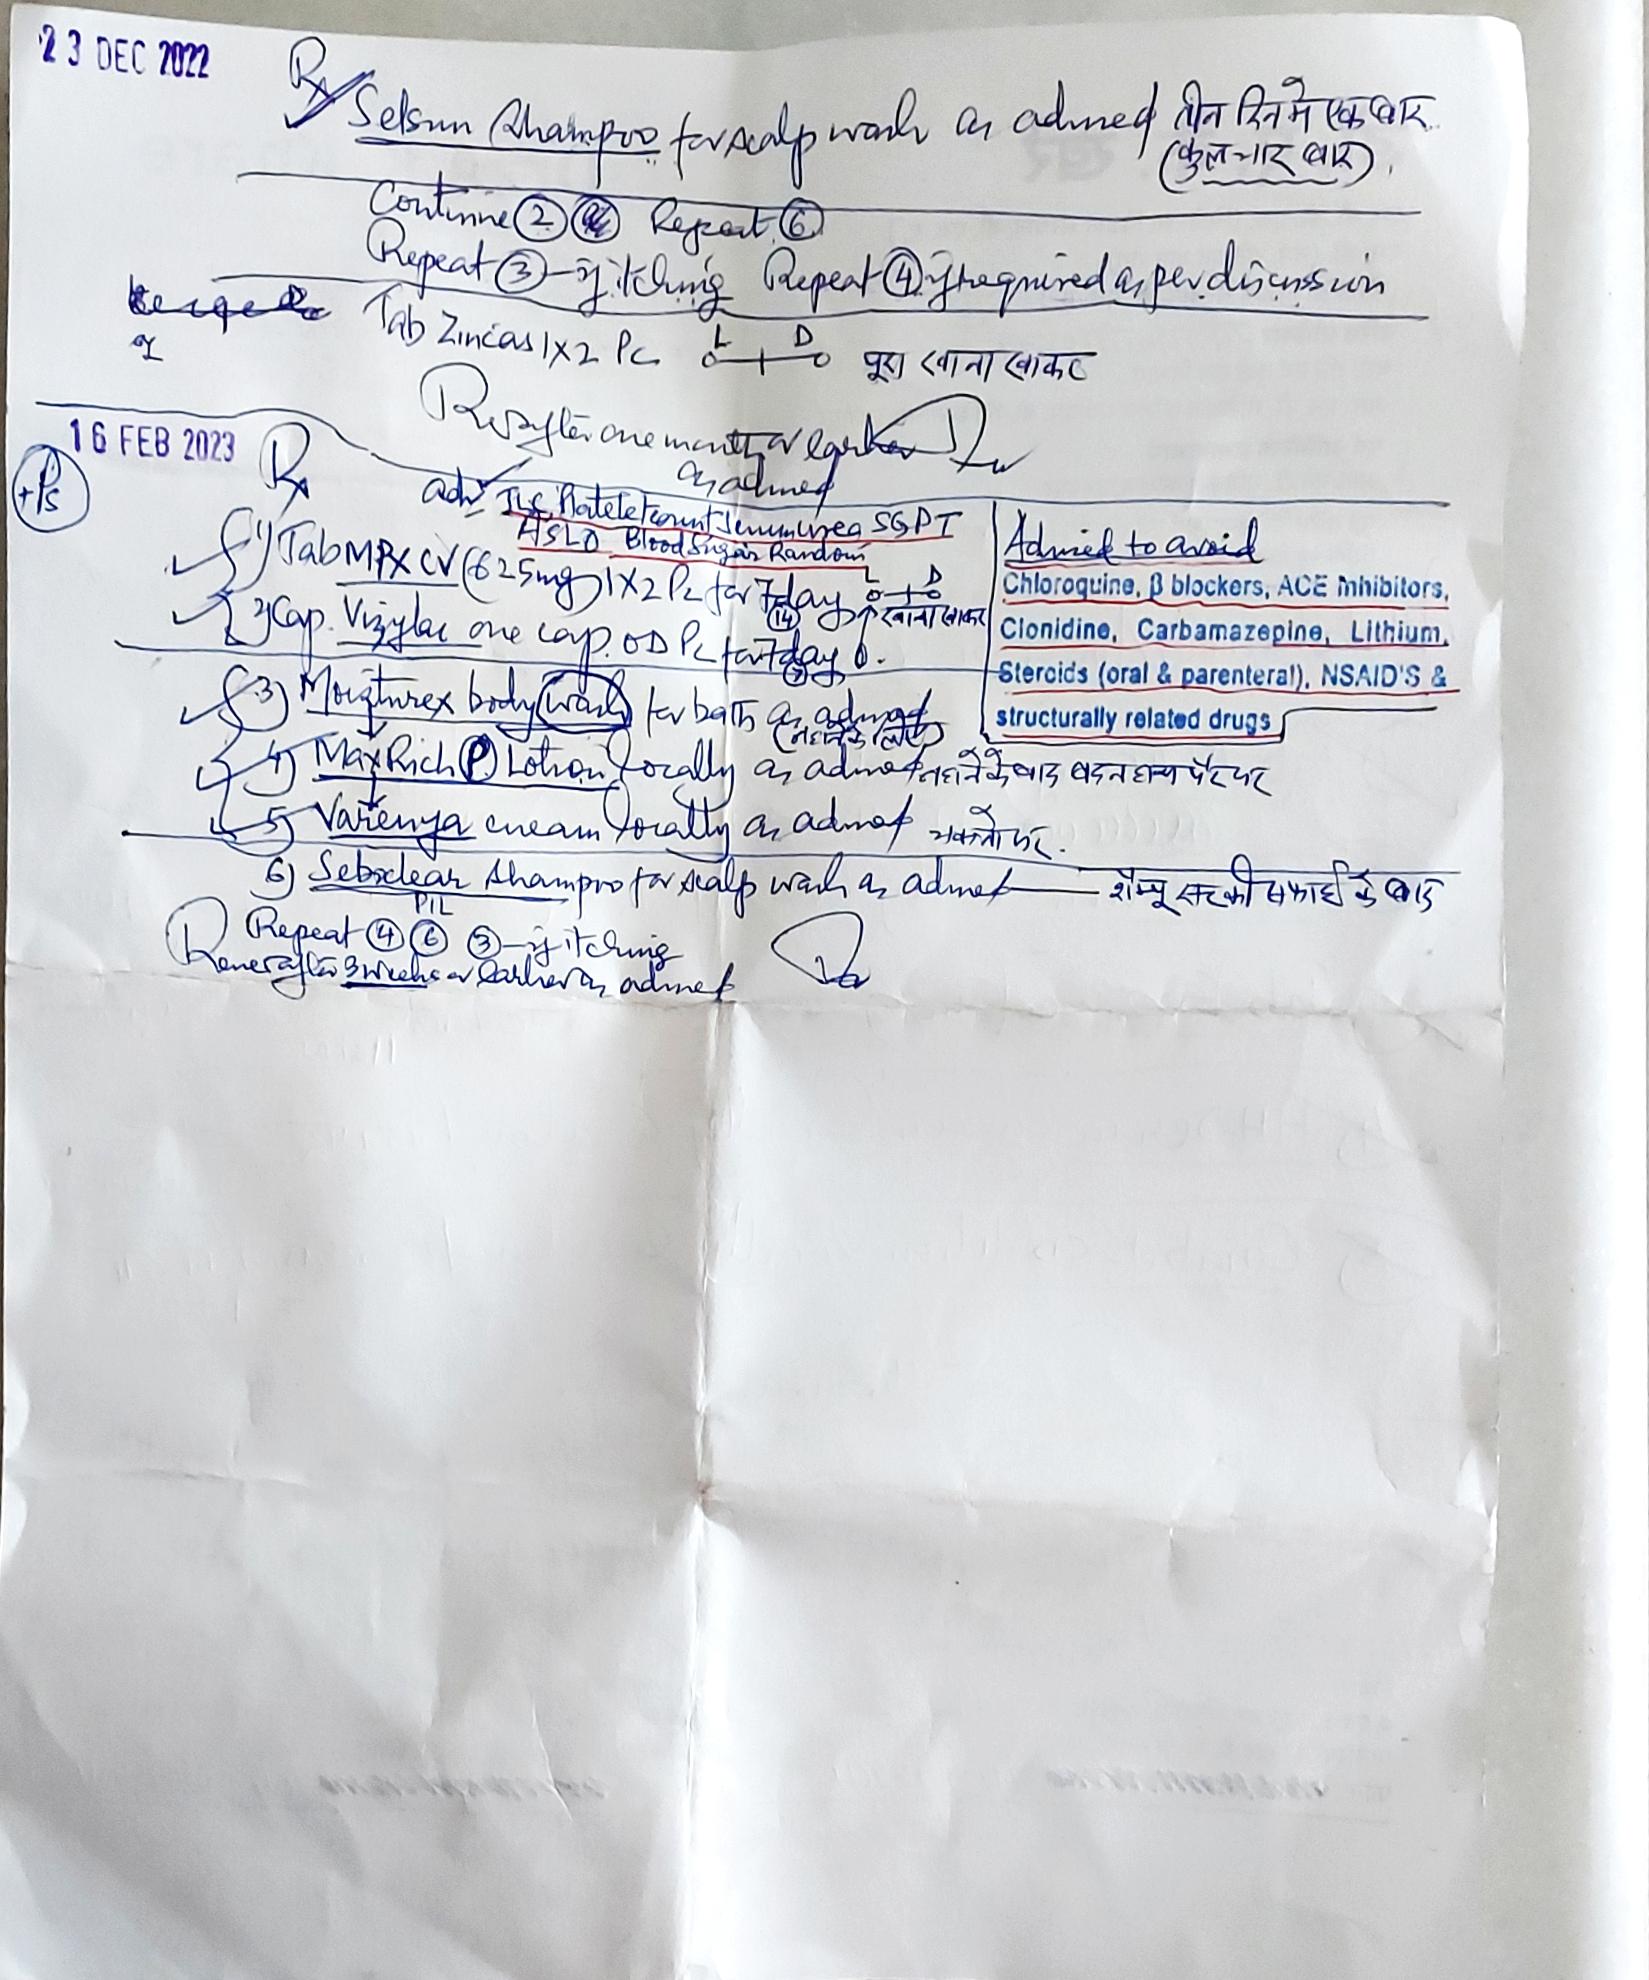 23 DEC 2022
Rx Selsun Shampoo for scalp wash as advised तीन दिन में एक बार
(कुल चार बार).
Continue 2 Repeat 6
Repeat 3 - if itching Repeat 4 if required as per discussion
Tab Zincas 1x2 Pc L D पूरा खाना खाकर
after one month or earlier
as advised
16 FEB 2023 Rx
+Ps
adv TLC, Platelet count, Serum urea SGPT
ASLO Blood Sugar Random
1) Tab MPX CV (625mg) 1x2 Pc for 7 day L D
14 खाना खाकर
2) Cap. Vizylac one cap. OD Pc for 7 day
7
Advised to avoid
Chloroquine, β blockers, ACE inhibitors,
Clonidine, Carbamazepine, Lithium,
Steroids (oral & parenteral), NSAID'S &
structurally related drugs
3) Moizturex body wash for bath as advised
(नहाने के लिए)
4) MaxRich P Lotion locally as advised नहाने के बाद बदन हाथ पैर पर
5) Varenya cream locally as advised चकत्तों पर.
6) Sebxclear Shampoo for scalp wash as advised शैम्पू सर की सफाई के बाद
Repeat 4 6 3 - if itching
after 3 weeks or earlier as advised